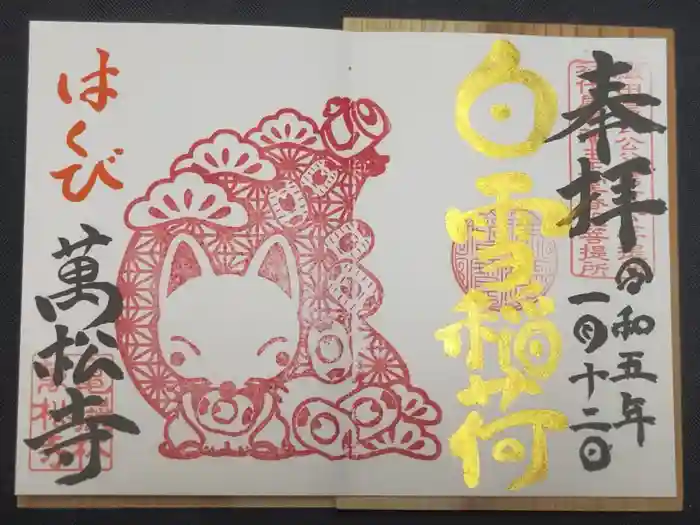 奉拝
令和五年
一月十二日
白雪稲荷
はくび
萬松寺